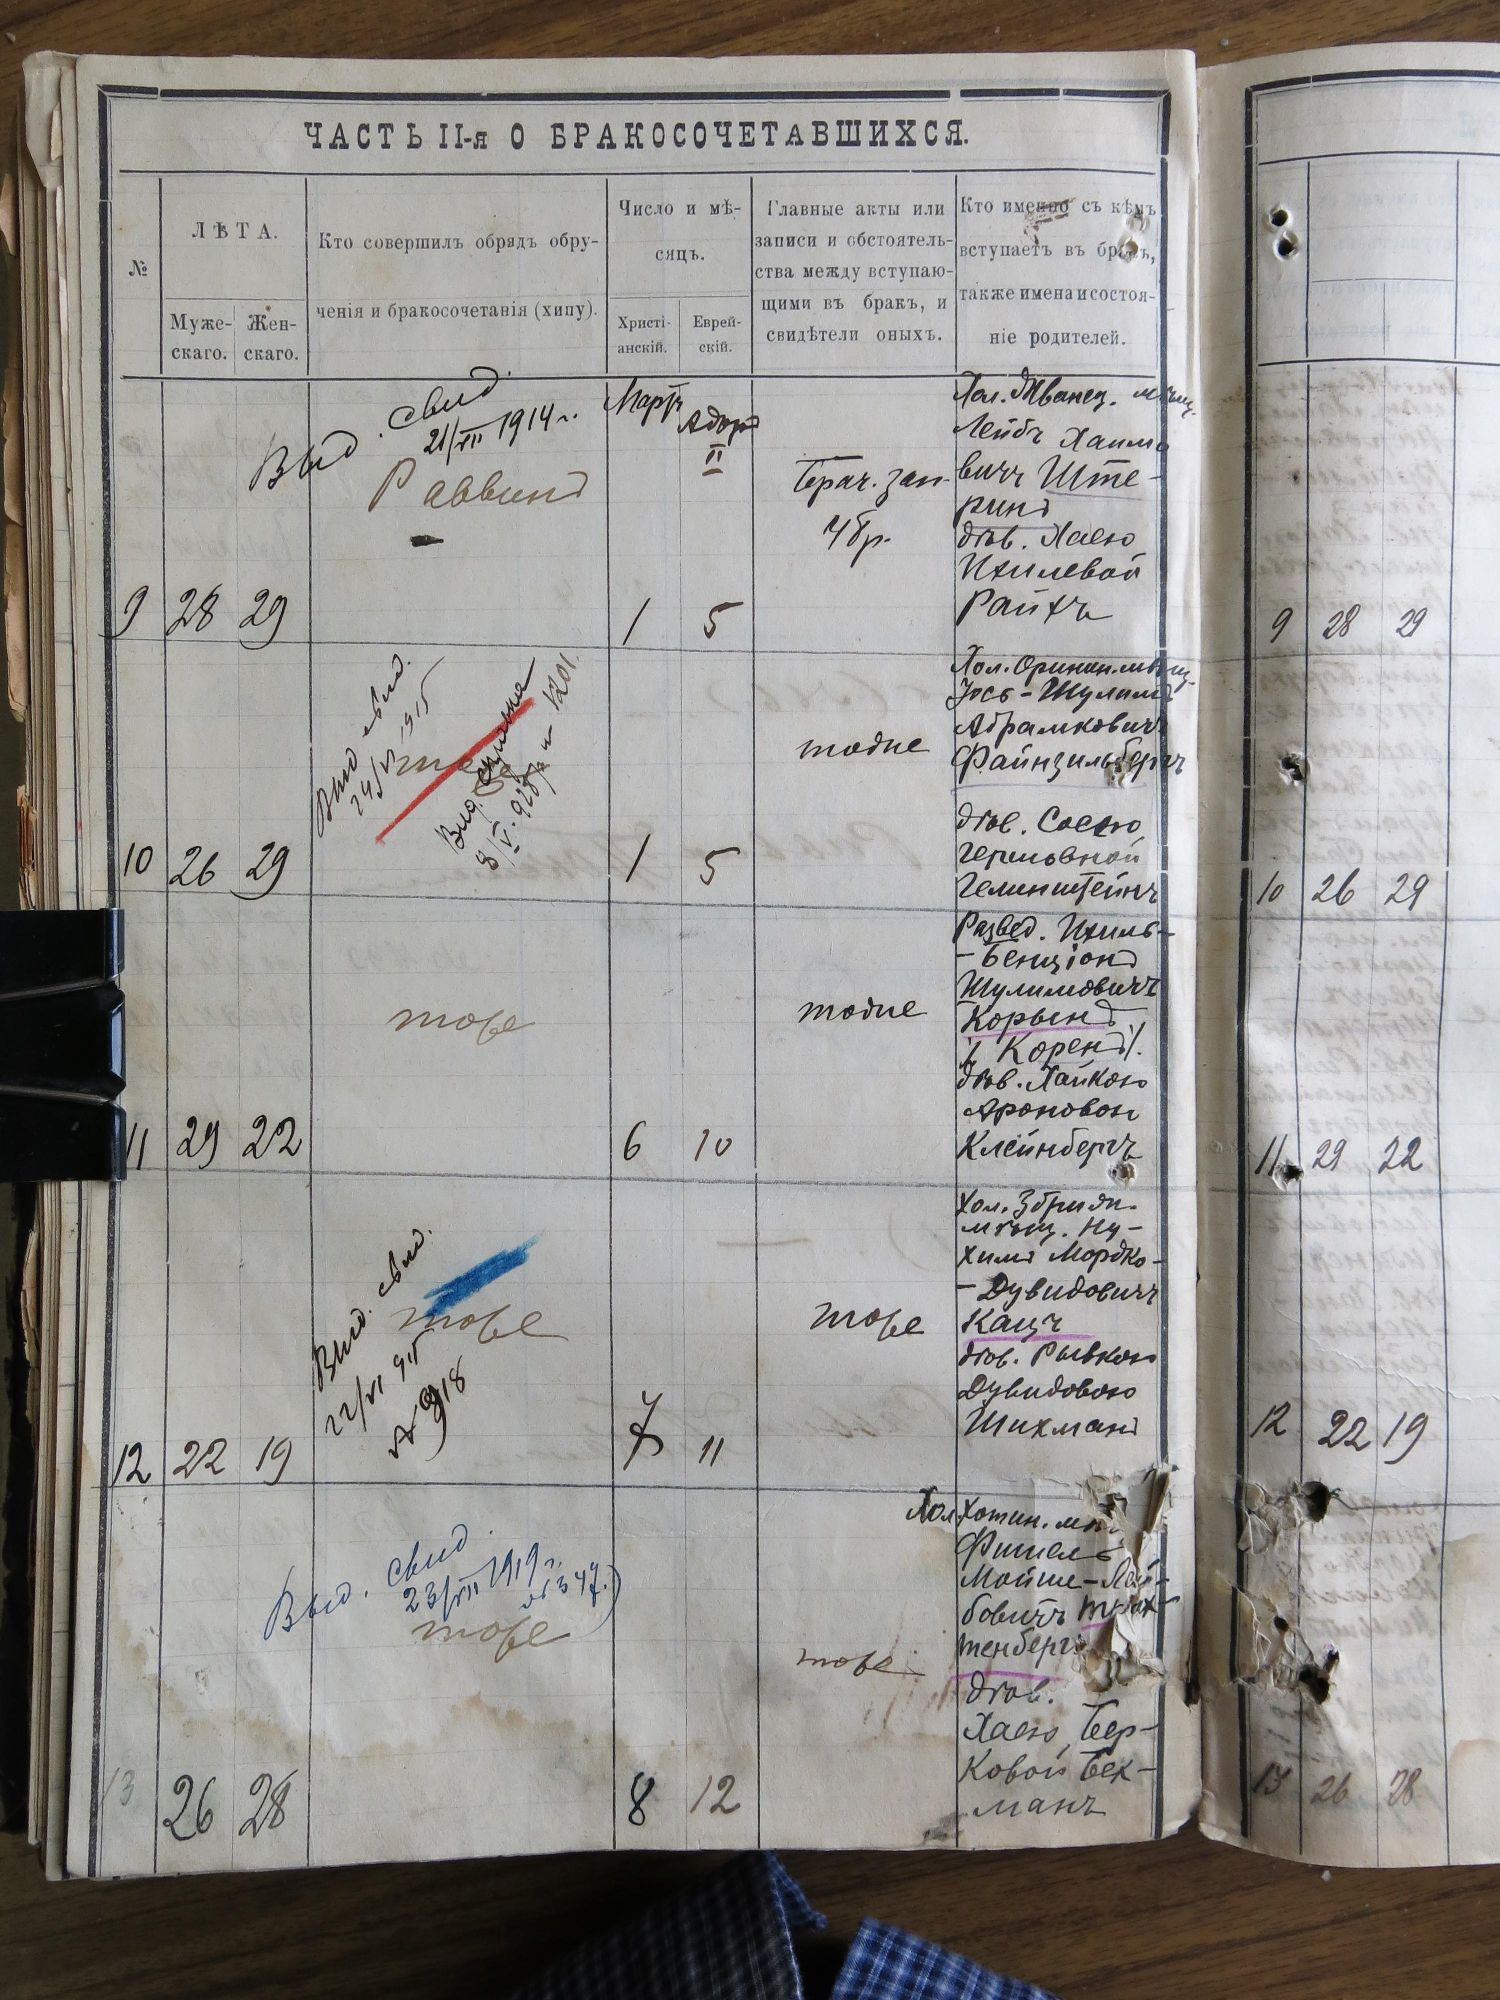 ЧАСТЬ II-я О БРАКОСОЧЕТАВШИХСЯ.
№
ЛѢТА.
Муже-
скаго.
Жен-
скаго.
Кто совершилъ обрядъ обру-
ченія и бракосочетанія (хипу).
Число и мѣ-
сяцъ.
Христі-
анскій.
Еврей-
скій.
Главные акты или
записи и обстоятель-
ства между вступаю-
щими въ бракъ, и
свидѣтели оныхъ.
Кто именно съ кѣмъ
вступаетъ въ бракъ,
также имена и состоя-
ніе родителей.
9
28
29
Выд. свид.
21/VII 1914 г.
Раввинъ
Мартъ
1
Адоръ
II
5
Брач. зап.
4 бр.
Хол. Жванец. мѣщ.
Лейбъ Хаимо
вичъ Ште-
ринъ
дѣв. Хаею
Ихилевой
Райхъ
10
26
29
Выд свид.
24/VI 915
тоже
Вид.
8/V. 928 р
1201.
1
5
тоже
Хол. Оринин. мѣщ.
Іось-Шулимъ
Абрамковичъ
Файнзильбергъ
дѣв. Сосею
Гершовной
Гелинштейнъ
11
29
22
тоже
6
10
тоже
Развед. Ихиль-
-Бенціонъ
Шулимовичъ
Корынъ
/ Коренъ /.
дѣв. Хайкою
Ароновой
Клейнбергъ
12
22
19
Выд. свид.
22/VI 915
№ 918
тоже
7
11
тоже
Хол. Збриж.
мѣщ. Ну-
химъ Мордко-
-Дувидовичъ
Кацъ
дѣв. Рывкою
Дувидовою
Шихманъ
13
26
28
Выд. свид.
23/VII 1919 г.
№ 347.)
тоже
8
12
тоже
Хол. Хотин. мѣ
Фишель
Мойше-Лей-
бовичъ
тенбергъ
дѣв.
Хаею Бер-
ковой Бек-
манъ
9
28
29
10
26
29
11
29
22
12
22
19
13
26
28